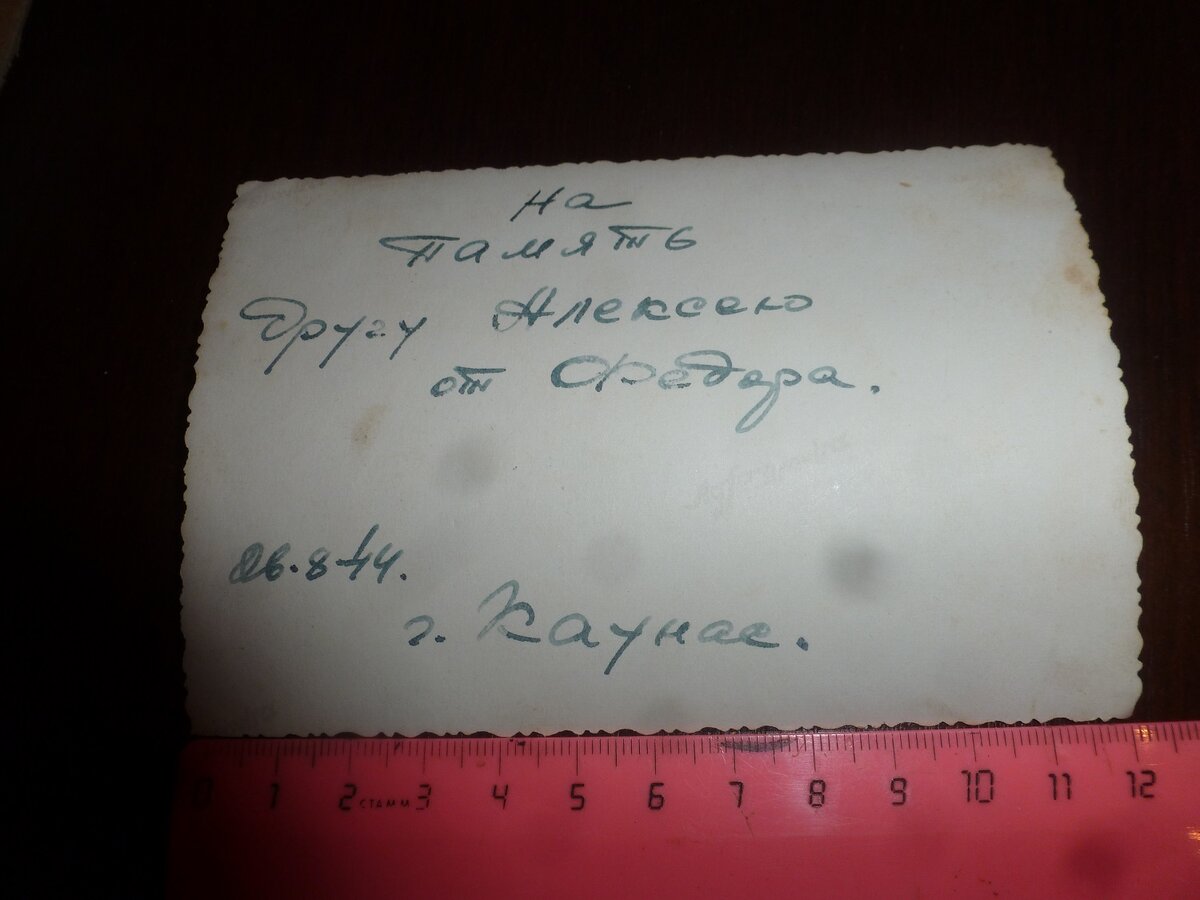 На
Память
Другу Алексею
от Федора.
26.8-44.
г. Каунас.
0 1 2 СТАММ 3 4 5 6 7 8 9 10 11 12